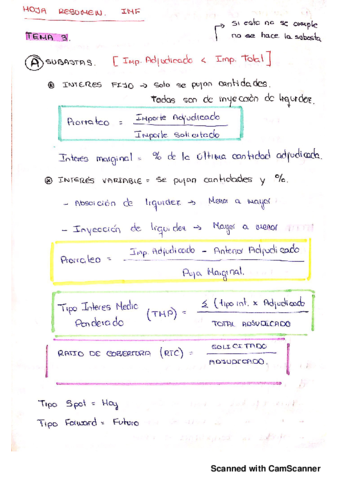 HOJA RESUMEN. IMF
→ Si esto no se cumple
no se hace la subasta.
TEMA 3.
A SUBASTAS. [Imp. Adjudicado < Imp. Total]
INTERES FIJO → Solo se pujan cantidades.
Todas son de inyección de liquidez.
Prorrateo = Importe Adjudicado
Importe Solicitado
Interes marginal = % de la última cantidad adjudicada.
INTERÉS VARIABLE = Se pujan cantidades y %.
- Absorción de liquidez → Menor a mayor
- Inyección de liquidez → Mayor a menor
Prorrateo = Imp. Adjudicado - Anterior Adjudicado
Puja Marginal.
Tipo Interes Medio
Ponderado (TMP) = Σ (tipo int. x Adjudicado
TOTAL ADJUDICADO
RATIO DE COBERTURA (RTC) = SOLICITADO
ADJUDICADO.
Tipo Spot = Hoy
Tipo Forward = Futuro
Scanned with CamScanner